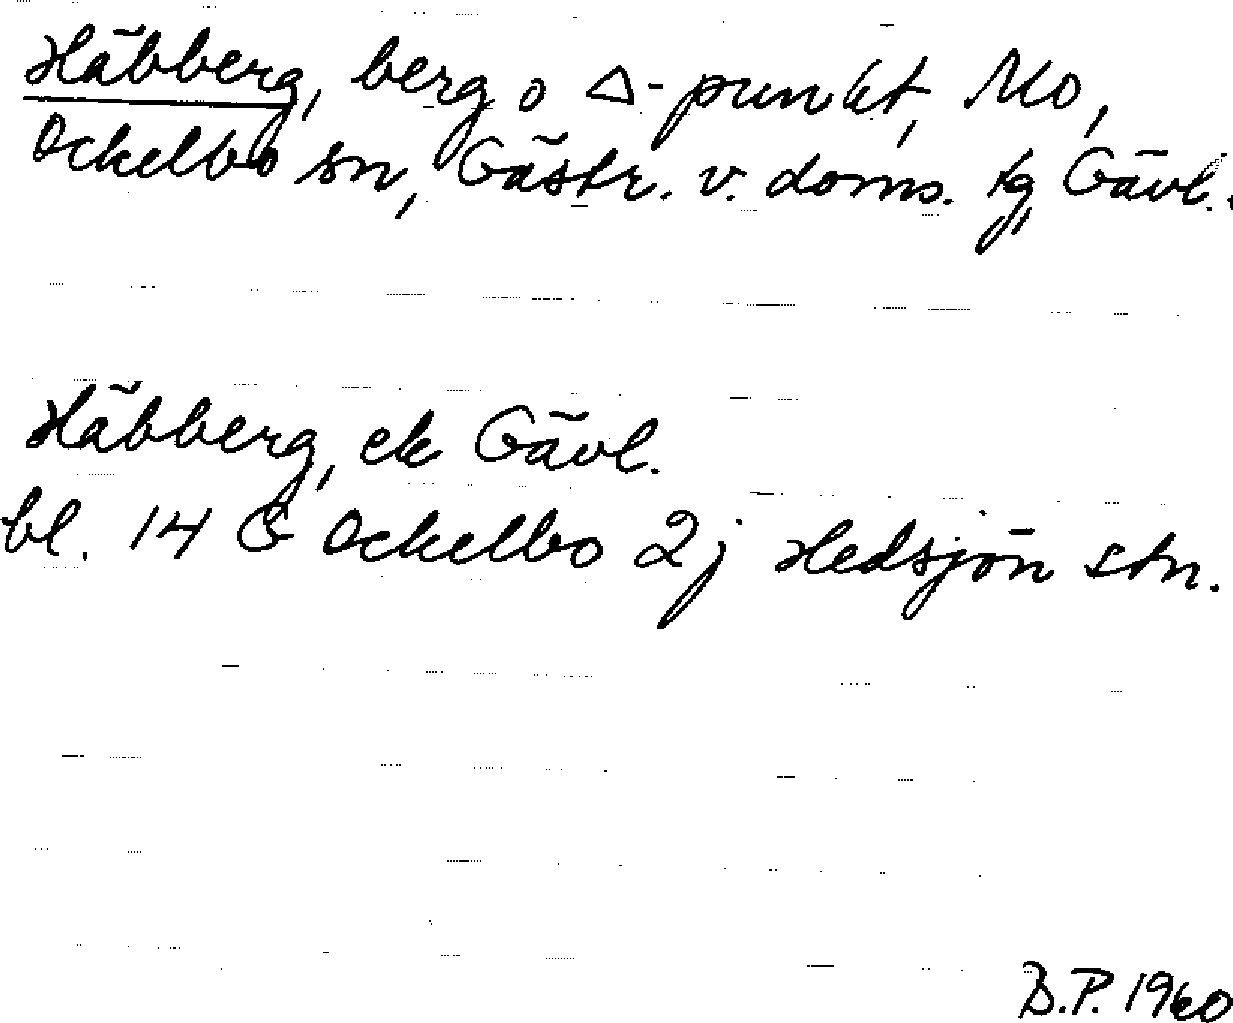 Häbberg, berg o △-punkt, Mo,
Ockelbo sn, Gästr. v. doms. tg, Gävl.
Häbberg, ek Gävl.
bl. 14 G Ockelbo 2j Hedsjön stn.
B.P. 1960